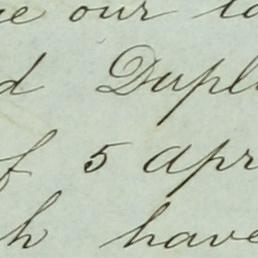 e our la
d Dupl
f 5 Apr
h have